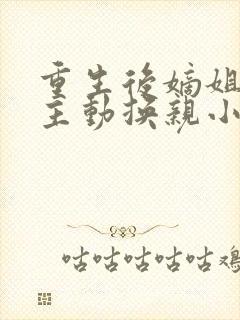 重生後嫡姐
主動換親小
咕咕咕咕咕鸡